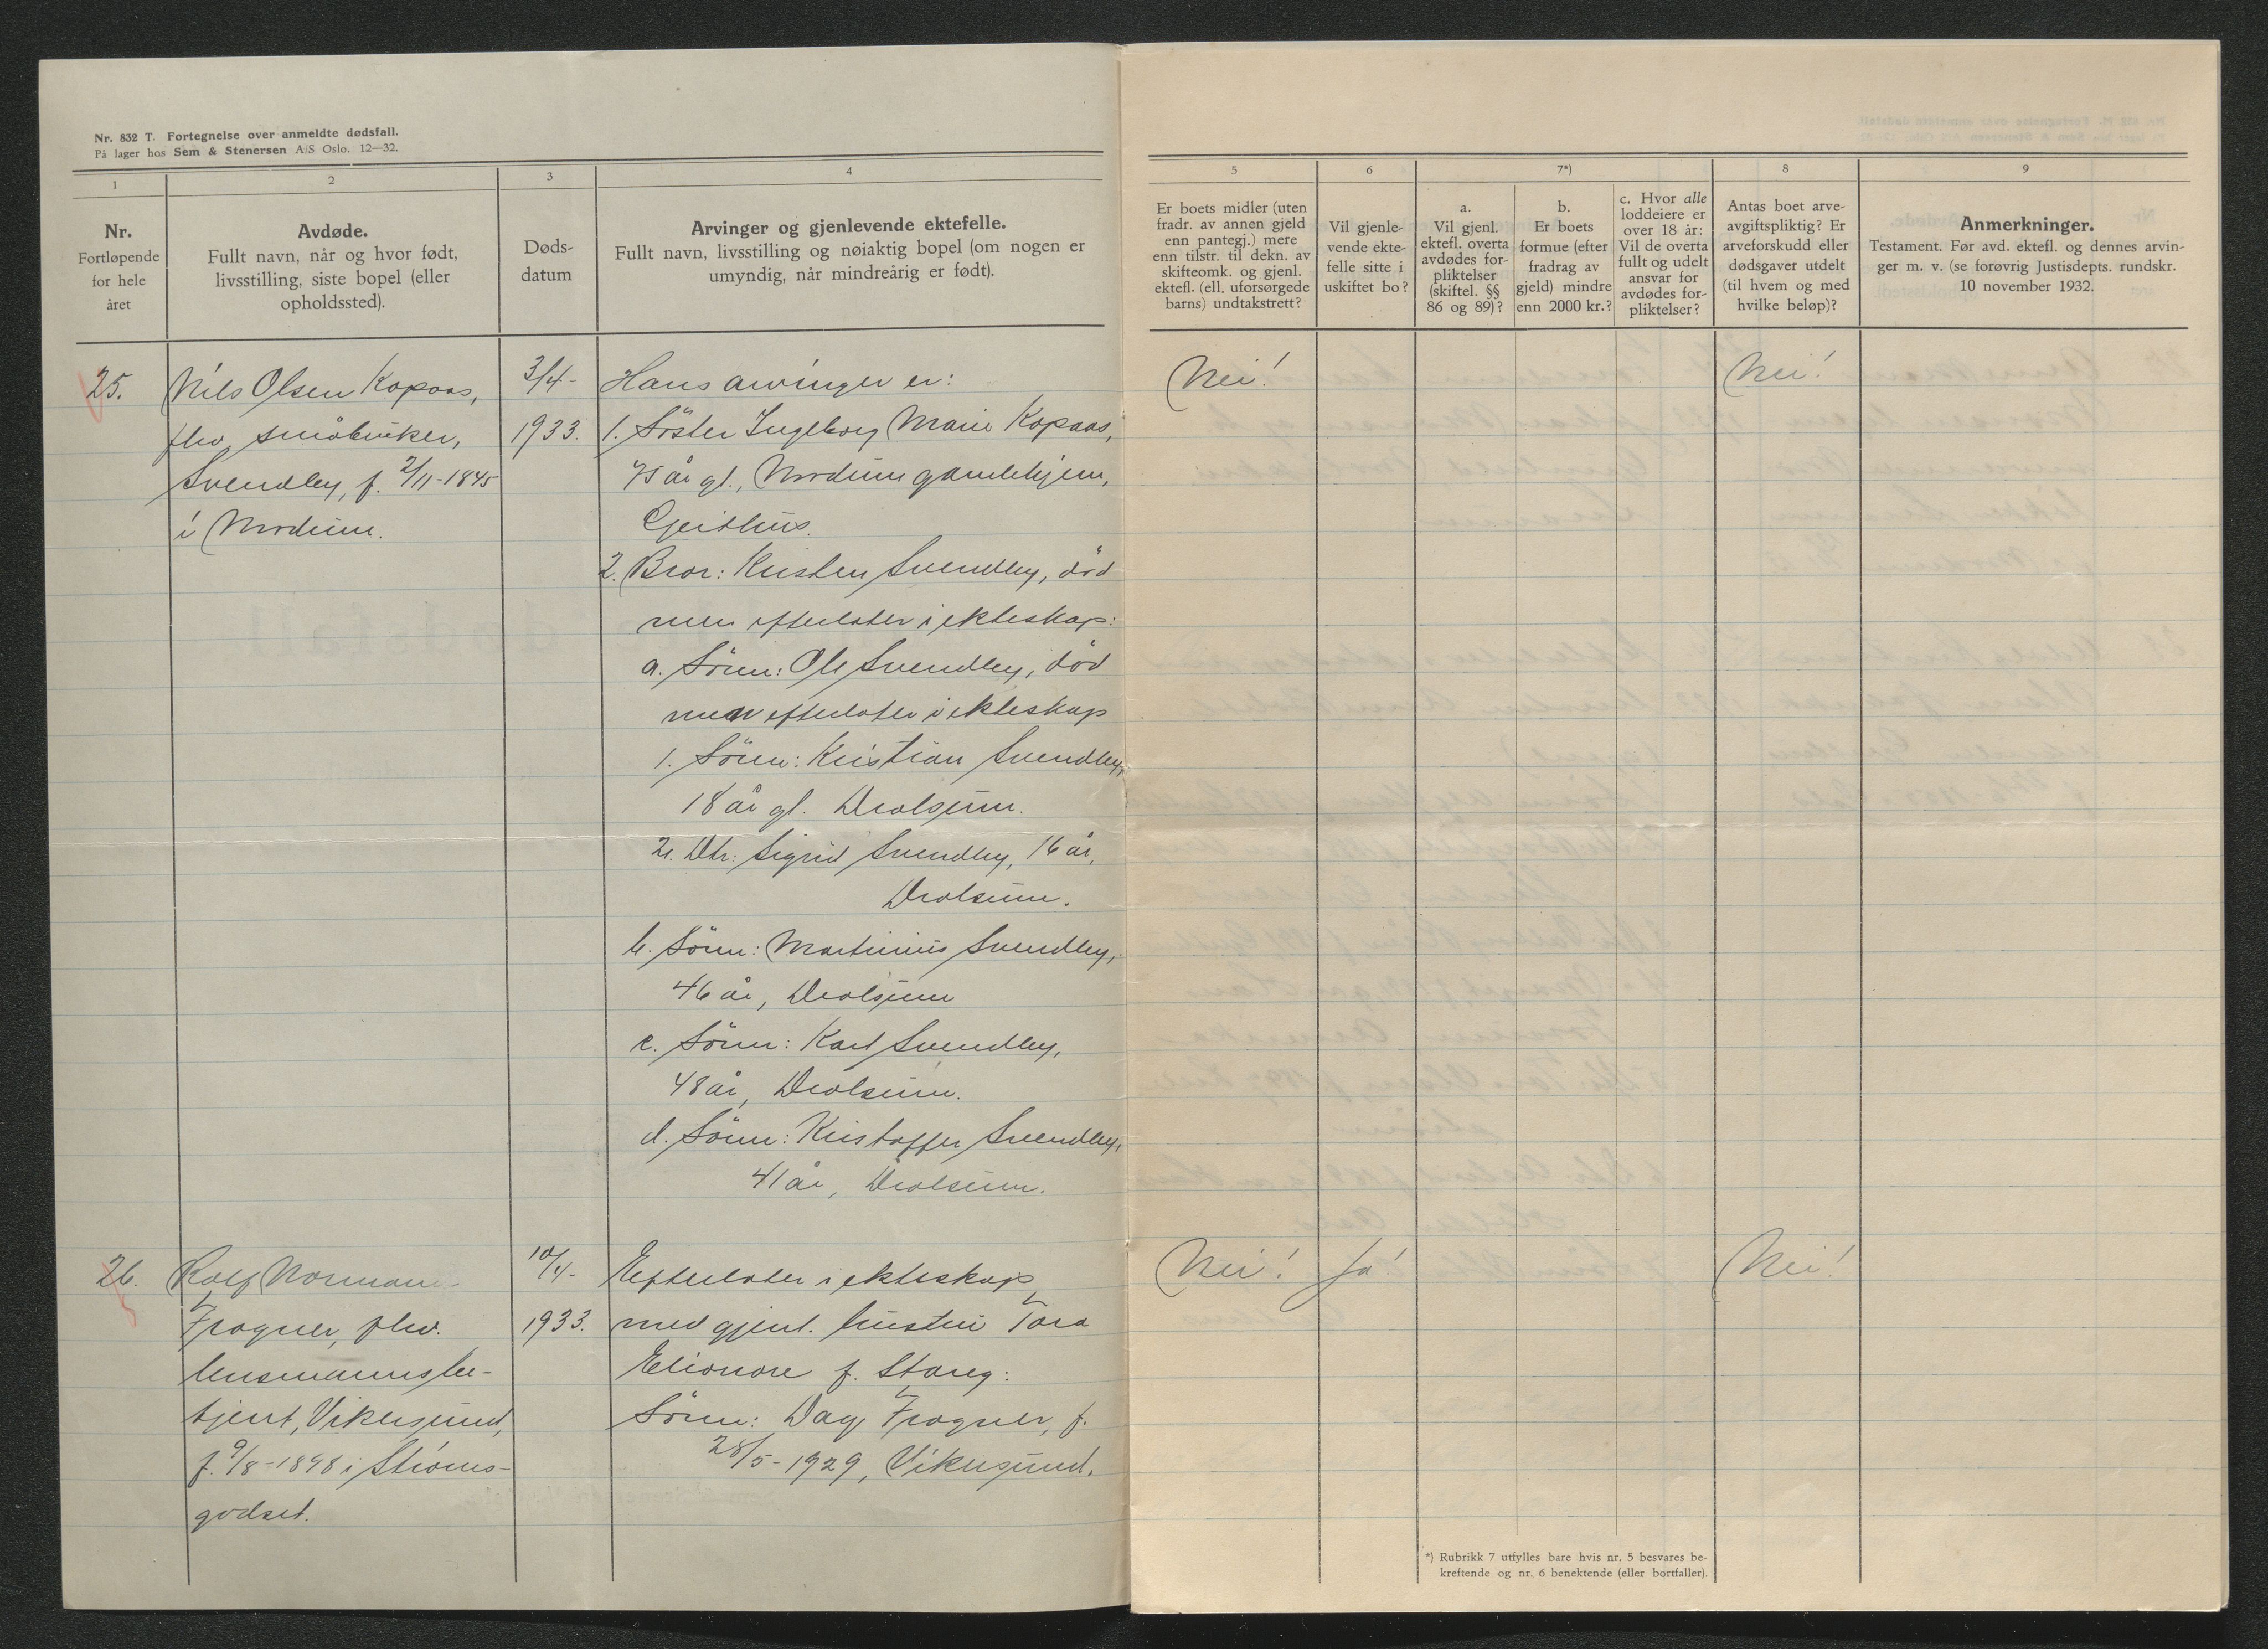 Nr. 832 T. Fortegnelse over anmeldte dødsfall.
På lager hos Sem & Stenersen A/S Oslo. 12—32.
1
2
3
4
Nr.
Fortløpende
for hele
året
Avdøde.
Fullt navn, når og hvor født,
livsstilling, siste bopel (eller
opholdssted).
Døds-
datum
Arvinger og gjenlevende ektefelle.
Fullt navn, livsstilling og nøiaktig bopel (om nogen er
umyndig, når mindreårig er født).
25.
Nils Olsen Kopaas,
fhv. småbruker,
Svendby, f. 2/11-1845
i Modum.
3/4-
1933.
Hans arvinger er:
1. Søster Ingeborg Marie Kopaas,
75 år gl., Modum gamlehjem,
Geithus.
2. Bror: Kristen Svendby, død
men efterlater i ekteskap:
a. Sönn: Ole Svendby, död
men efterlater i ekteskap
1. Sönn: Kristian Svendby,
18 år gl. Drolsum.
2. Dtr: Sigrid Svendby, 16 år,
Drolsum.
b. Sönn: Martinius Svendby,
46 år, Drolsum
c. Sönn: Karl Svendby,
48 år, Drolsum.
d. Sönn: Kristoffer Svendby,
41 år, Drolsum.
26.
Rolf Normann
Frogner, fhv.
lensmannsbe-
tjent, Vikersund,
f. 9/8-1898 i Strøms-
godset.
10/4-
1933.
Efterlater i ekteskap
med gjenl. hustru Tora
Elionore f. Stang:
Sönn: Dag Frogner, f.
28/5-1929, Vikersund.
5
6
7*)
8
9
Er boets midler (uten
fradr. av annen gjeld
enn pantegj.) mere
enn tilstr. til dekn. av
skifteomk. og gjenl.
ektefl. (ell. uforsørgede
barns) undtakstrett?
Vil gjenle-
vende ekte-
felle sitte i
uskiftet bo?
a.
Vil gjenl.
ektefl. overta
avdødes for-
pliktelser
(skiftel. §§
86 og 89)?
b.
Er boets
formue (efter
fradrag av
gjeld) mindre
enn 2000 kr.?
c. Hvor alle
loddeiere er
over 18 år:
Vil de overta
fullt og udelt
ansvar for
avdødes for-
pliktelser?
Antas boet arve-
avgiftspliktig? Er
arveforskudd eller
dødsgaver utdelt
(til hvem og med
hvilke beløp)?
Anmerkninger.
Testament. Før avd. ektefl. og dennes arvin-
ger m. v. (se forøvrig Justisdepts. rundskr.
10 november 1932.
Nei!
Nei!
Nei!
Ja!
Nei!
*) Rubrikk 7 utfylles bare hvis nr. 5 besvares be-
kreftende og nr. 6 benektende (eller bortfaller).